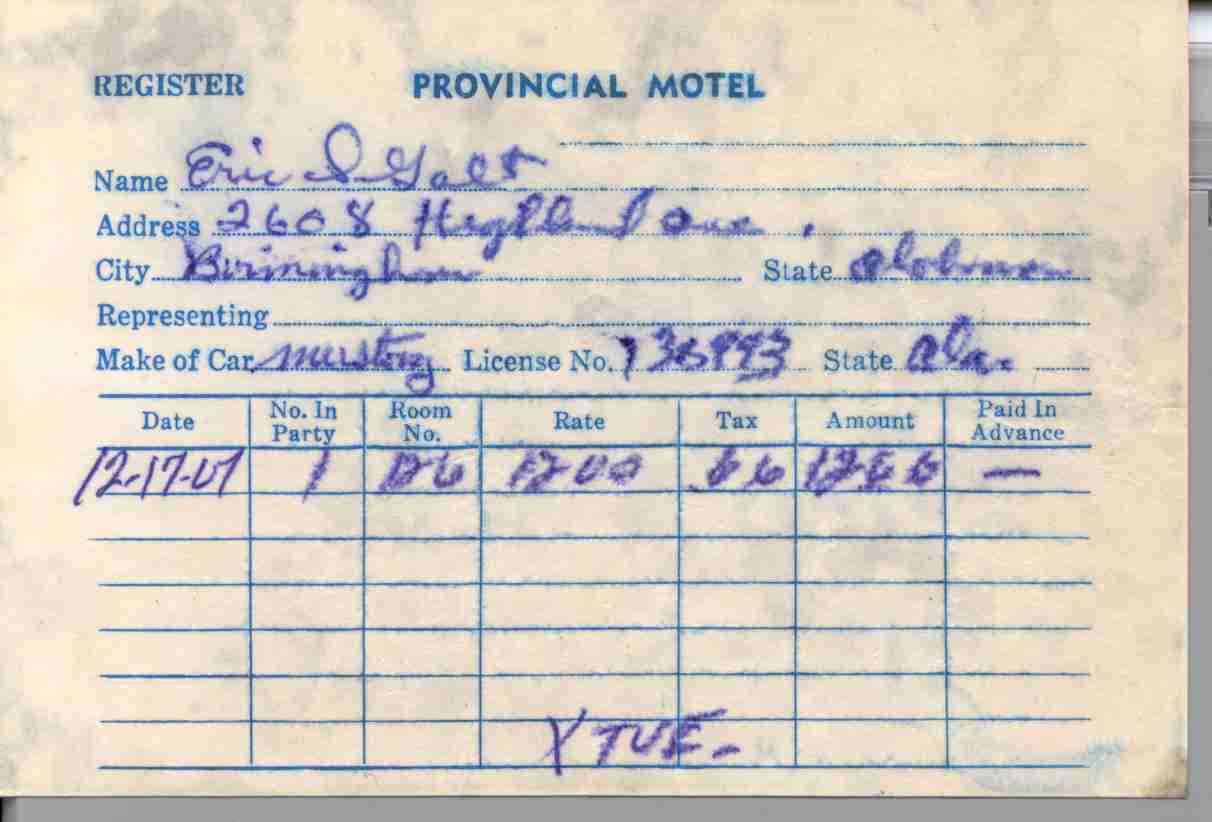 REGISTER PROVINCIAL MOTEL
Name Eric S Galt
Address 2608 Highland Ave.
City Birmingham State Alabama
Representing
Make of Car mustang License No. 138993 State Ala.
Date No. In Party Room No. Rate Tax Amount Paid In Advance
12-17-67 1 126 12 00 .66 12 66 —
X TUE-